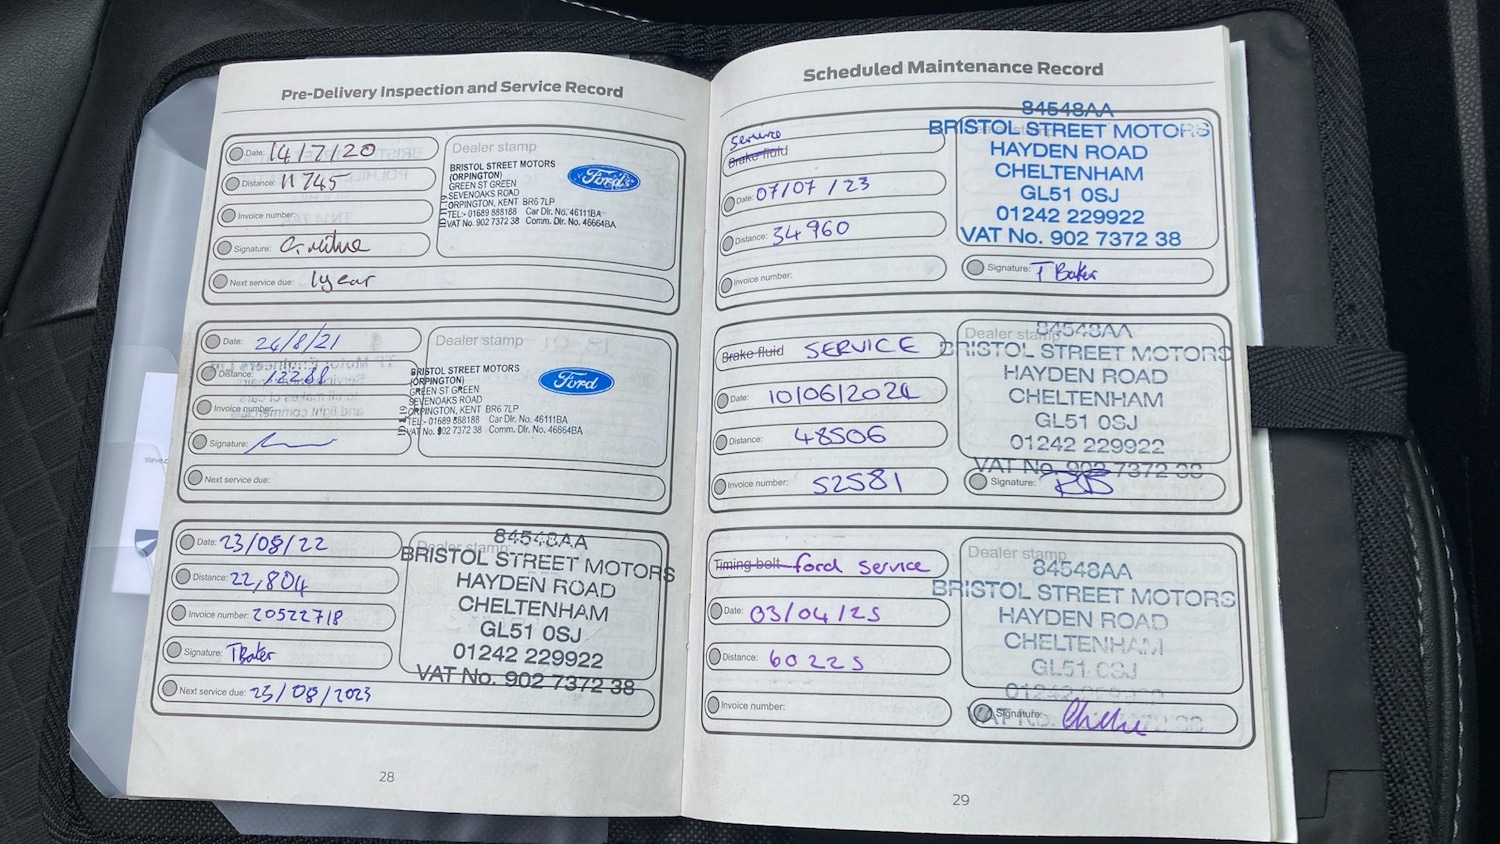 Pre-Delivery Inspection and Service Record
Date: 14/7/20
Distance: 11745
Invoice number:
Signature:
Next service due: 1 year
Dealer stamp
BRISTOL STREET MOTORS
(ORPINGTON)
GREEN ST GREEN
SEVENOAKS ROAD
ORPINGTON, KENT BR6 7LP
TEL:- 01689 888188 Car Dlr. No. 46111BA
VAT No. 902 7372 38 Comm. Dlr. No. 46664BA
Ford
Date: 24/8/21
Distance:
Invoice number:
Signature:
Next service due:
Dealer stamp
BRISTOL STREET MOTORS
(ORPINGTON)
GREEN ST GREEN
SEVENOAKS ROAD
ORPINGTON, KENT BR6 7LP
TEL:- 01689 888188 Car Dlr. No. 46111BA
VAT No. 902 7372 38 Comm. Dlr. No. 46664BA
Ford
Date: 23/08/22
Distance: 22,804
Invoice number: 20522718
Signature: T Baker
Next service due: 23/08/2023
Dealer stamp
84548AA
BRISTOL STREET MOTORS
HAYDEN ROAD
CHELTENHAM
GL51 0SJ
01242 229922
VAT No. 902 7372 38
28
Scheduled Maintenance Record
Service
Brake fluid
Date: 07/07/23
Distance: 34960
Invoice number:
84548AA
BRISTOL STREET MOTORS
HAYDEN ROAD
CHELTENHAM
GL51 0SJ
01242 229922
VAT No. 902 7372 38
Signature: T Baker
Brake fluid SERVICE
Date: 10/06/2024
Distance: 48506
Invoice number: 52581
Dealer stamp
84548AA
BRISTOL STREET MOTORS
HAYDEN ROAD
CHELTENHAM
GL51 0SJ
01242 229922
VAT No. 902 7372 38
Signature:
Timing belt ford service
Date: 03/04/25
Distance: 60225
Invoice number:
Dealer stamp
84548AA
BRISTOL STREET MOTORS
HAYDEN ROAD
CHELTENHAM
GL51 0SJ
01242
Signature:
29